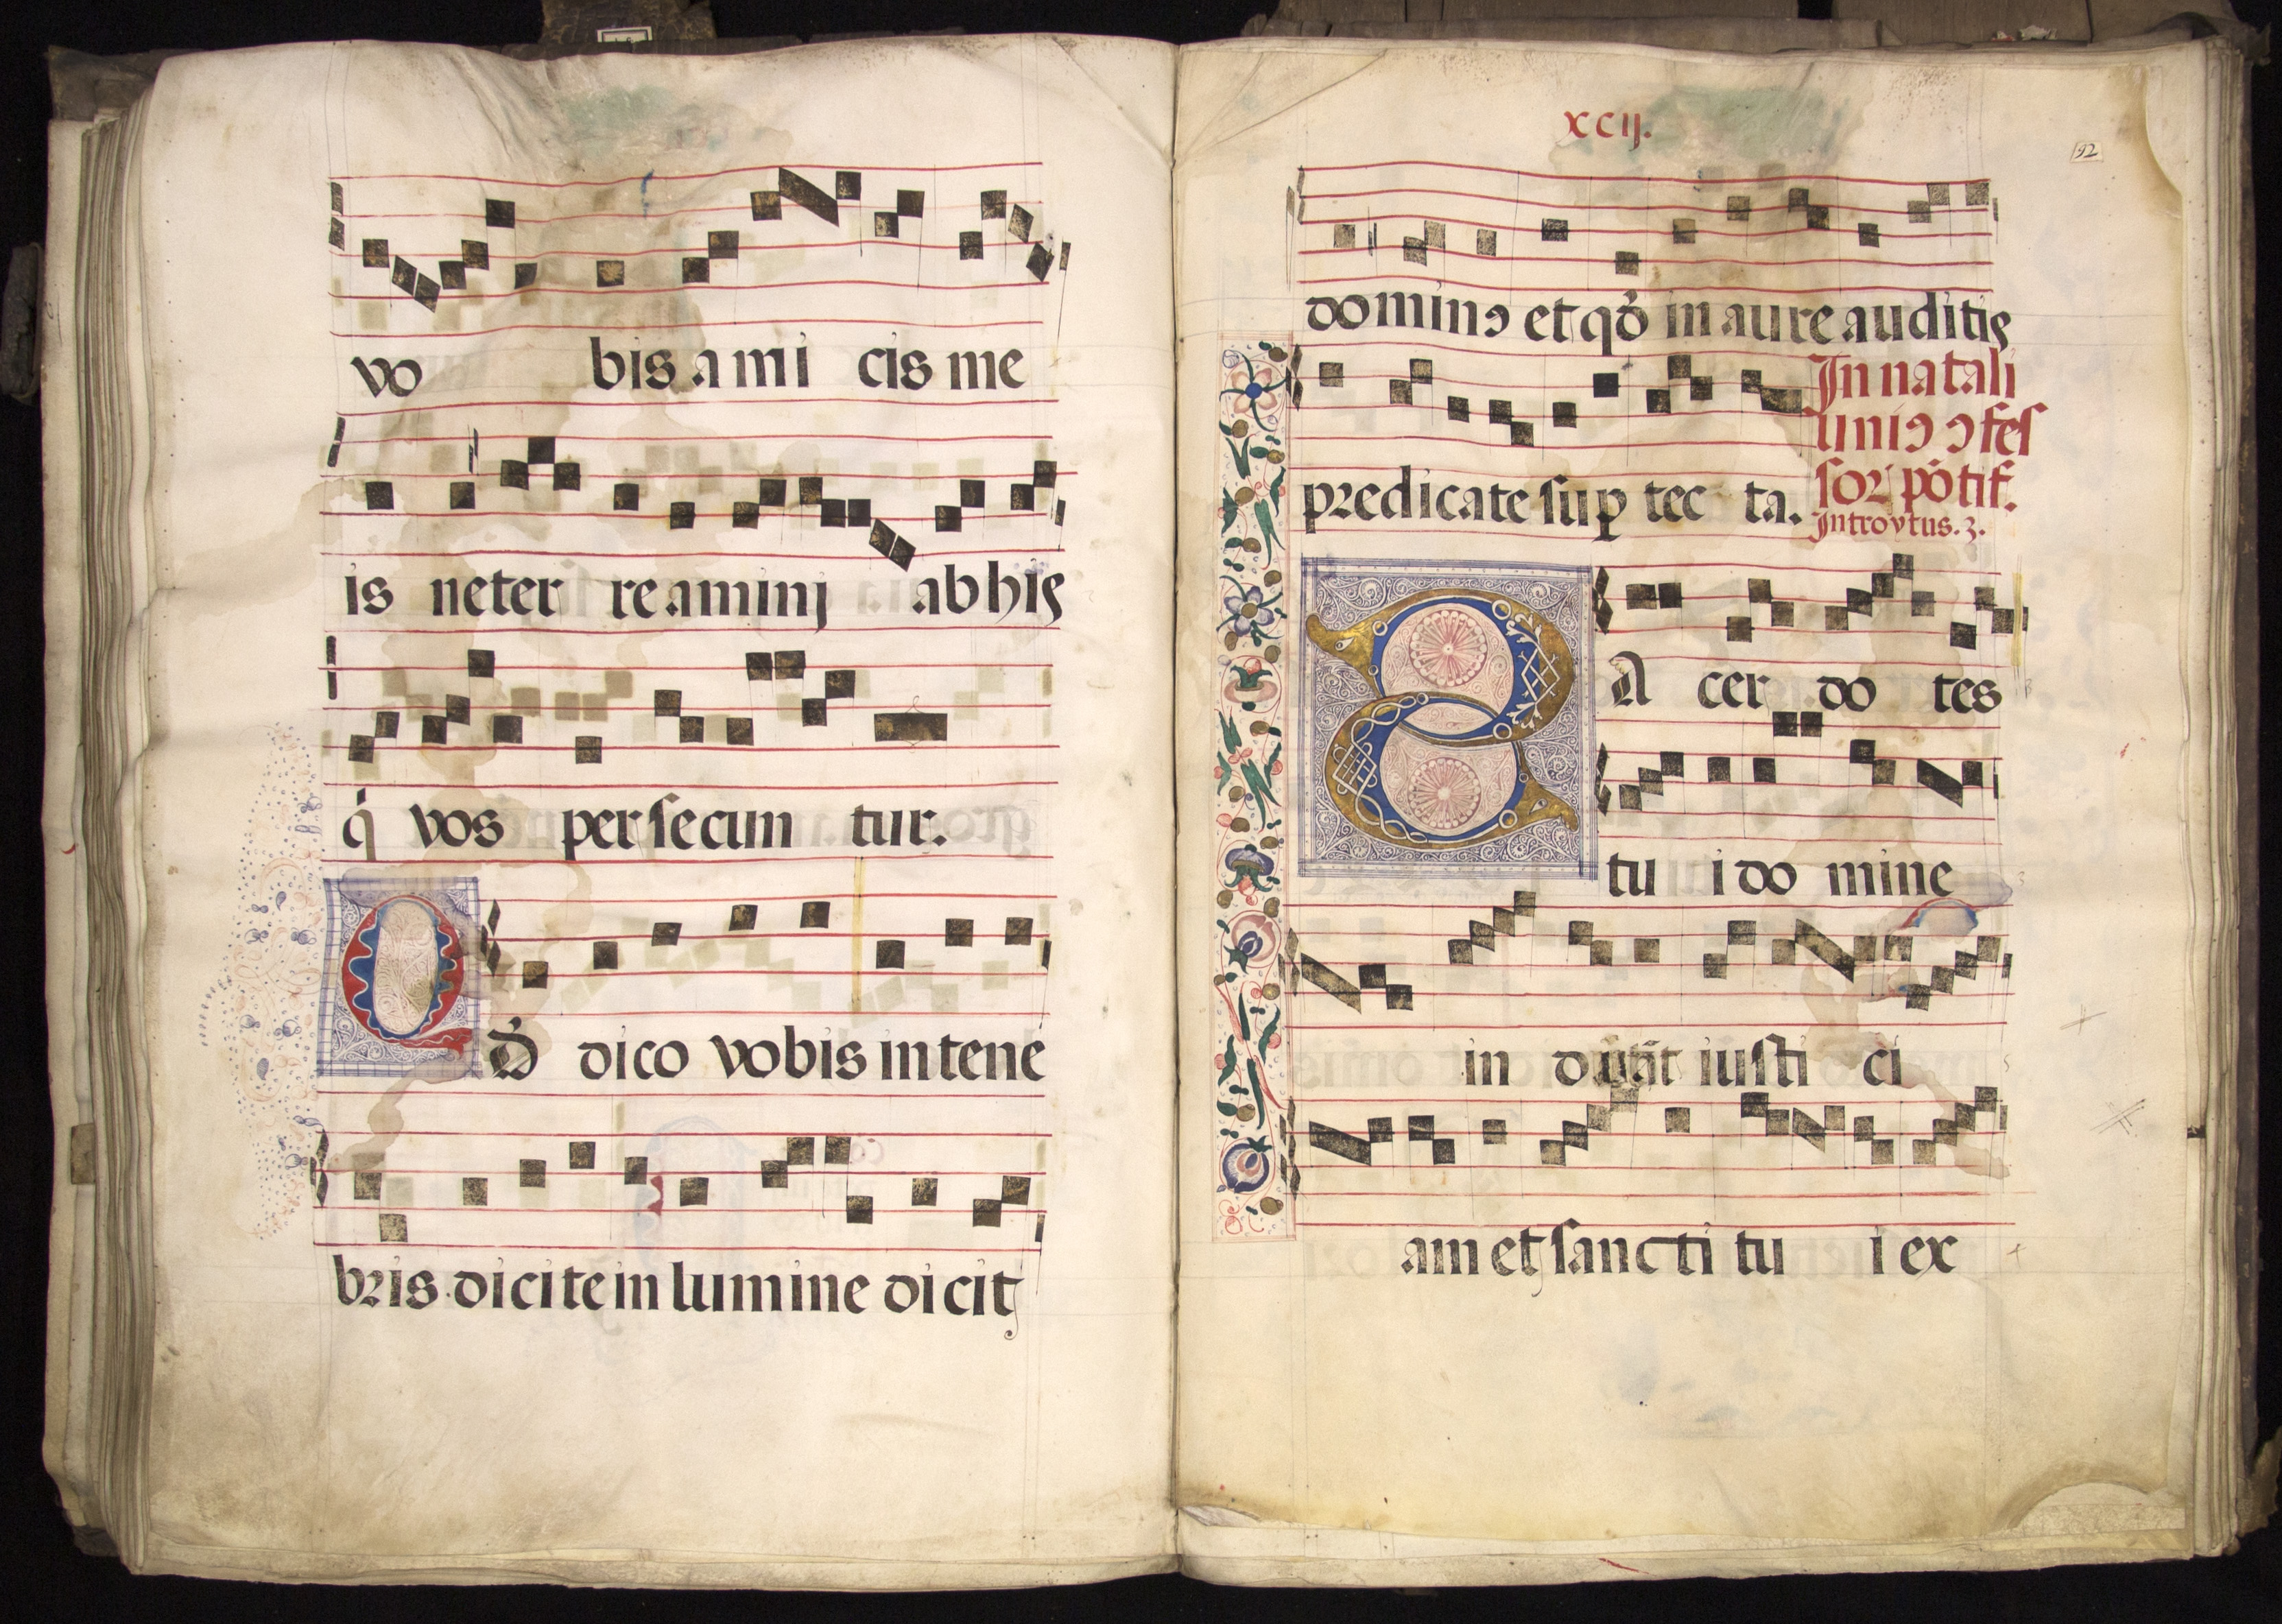 vo bis a mi cis me
is ne ter re amini ab his
q̇ vos per secun tur.
Qd̄ dico vobis in tene
bris dicite in lumine dicit
xcij.
92
dominꝰ et qđ in aure auditis
predicate sup tec ta.
In natali
uniꝰ ꝯfes
sor pōtif.
Introytus. 3.
SA cer do tes
tu i do mine
in duāt iusti ci
am et sancti tu i ex